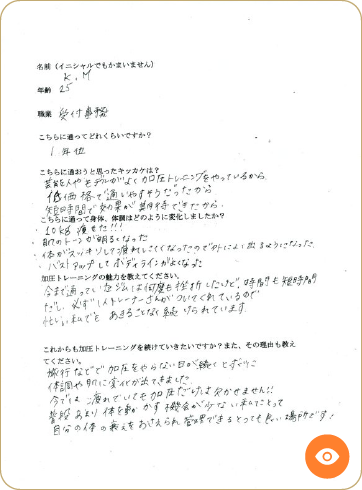 名前（イニシャルでもかまいません）
K.M
年齢 25
職業 受付事務
こちらに通ってどれくらいですか？
1年位
こちらに通おうと思ったキッカケは？
芸能人やモデルがよく加圧トレーニングをやっているから
低価格で通いやすそうだったから
短時間で効果が期待できたから
こちらに通って身体、体調はどのように変化しましたか？
・10kg痩せた!!!
・肌のトーンが明るくなった
・体がスッキリして疲れにくくなったので外によく出るようになった
・バストアップしてボディラインがよくなった
加圧トレーニングの魅力を教えてください。
今まで通っていたジムは何度も挫折したけど、時間も短時間
だし、必ず1人トレーナーさんがついてくれているので
忙しい私でも あきることなく続けられています。
これからも加圧トレーニングを続けていきたいですか？また、その理由も教え
てください。
旅行などで加圧をやらない日が続くとずっと
体調や肌に変化が出てきました
今では疲れていても加圧だけは欠かせません!!
普段あまり体を動かす機会が少ない私にとって
自分の体の衰えをおさえられ管理できるとっても良い場所です!